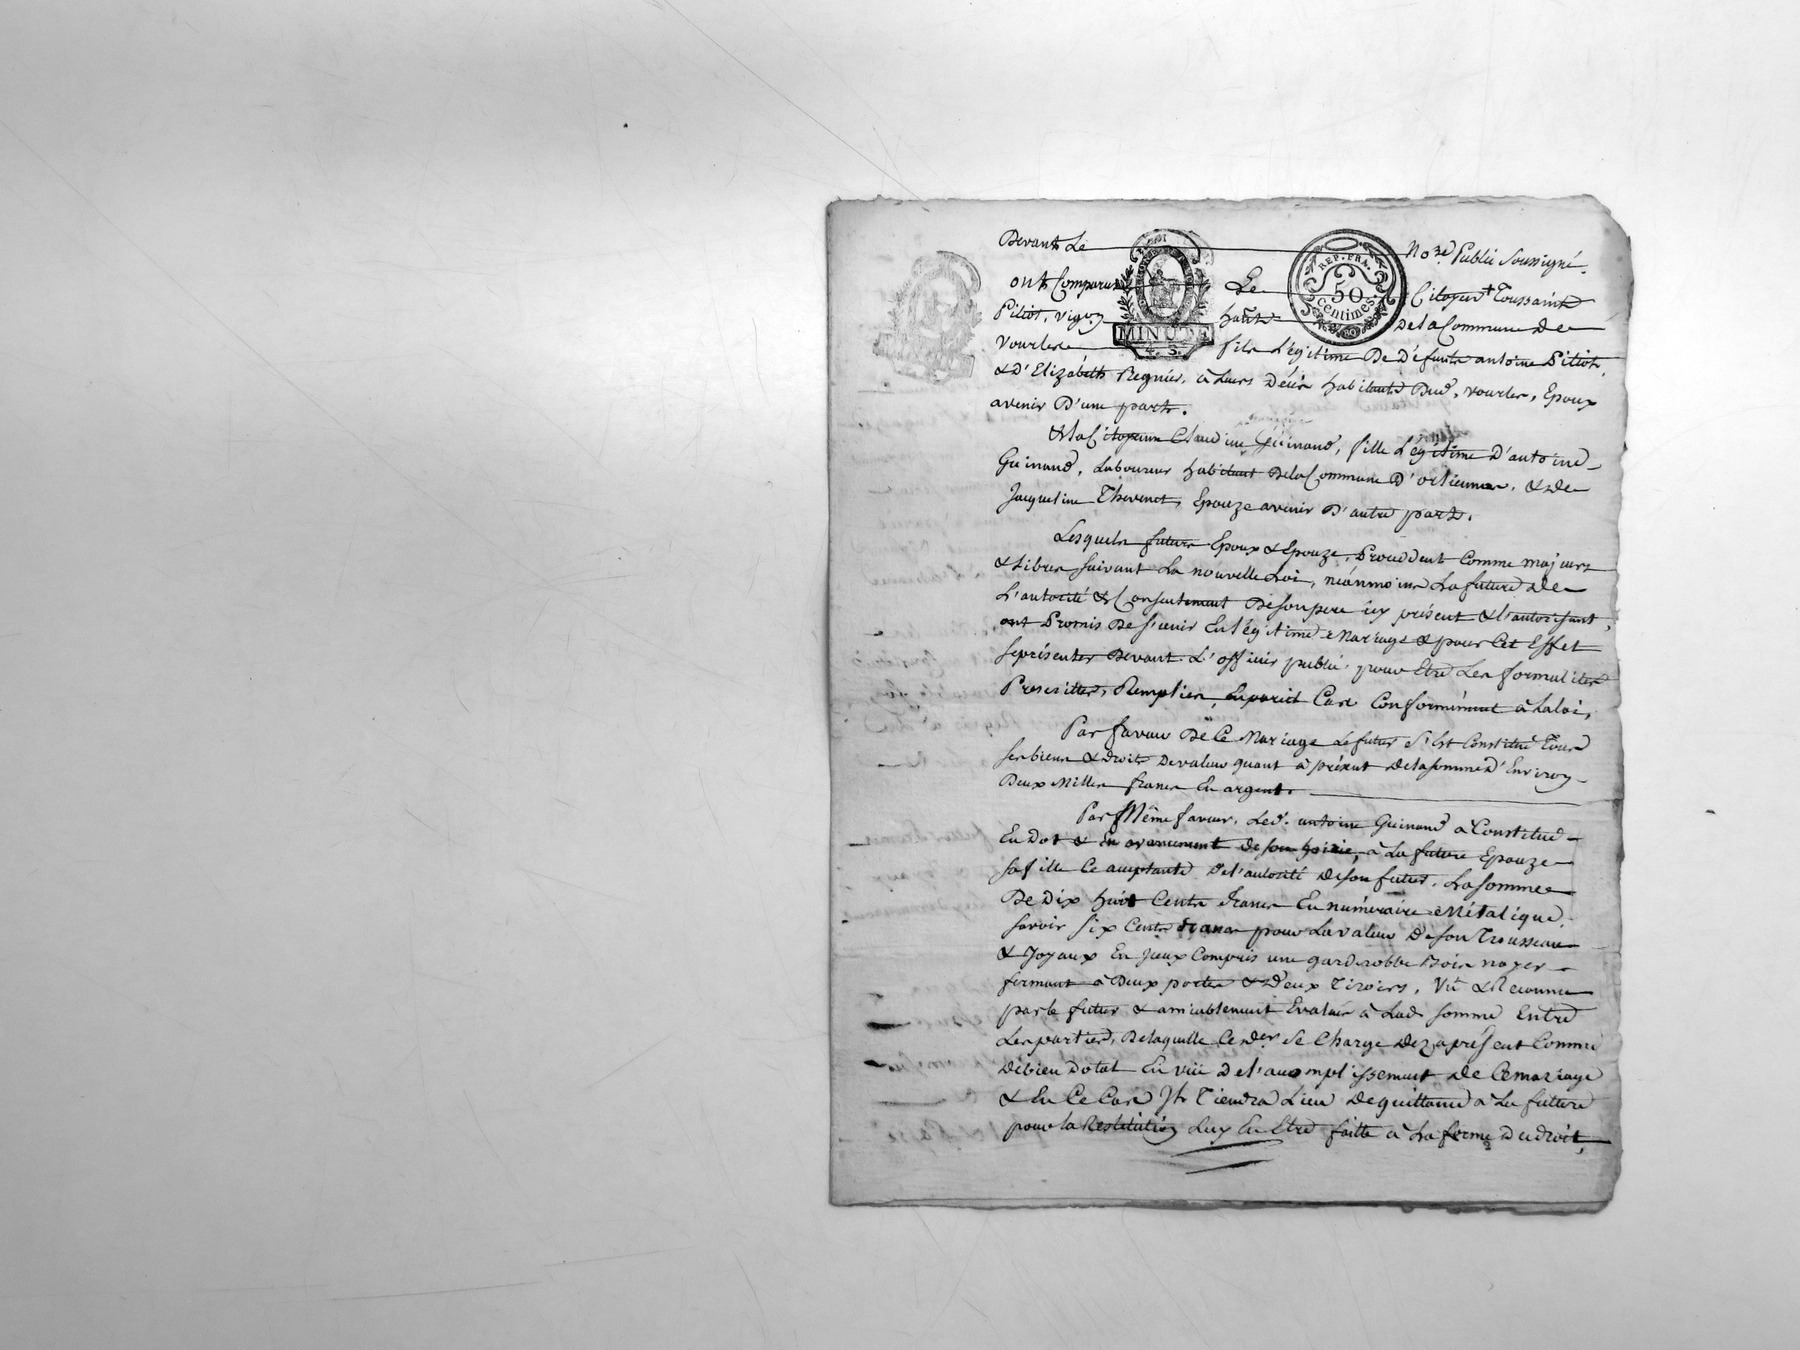 Devant Le No.re Public Soussigné.
ont Comparu Le Citoyen Toussaint
Pitiot, vig.on habit.t de la Commune de
Vourles fils Légitime De Défunts antoine Pitiot,
& D'Elizabeth Regnier, à Leurs Décès habitants Dud. vourles, Epoux
avenir D'une part.
& la Citoyenne Claudine Guinand, fille Légitime D'antoine
Guinand, Laboureur habitant De la Commune D'orlienna, & de
Jacqueline Thevenet, Epouze avenir D'autre part.
Lesquels futurs Epoux & Epouze, Procédent Comme majeurs
& Libres suivant La nouvelle Loi, néanmoins La future de
L'autorité & Consentement De son pere icy présent & l'autorisant,
ont Promis De s'unir En Légitime Mariage & pour Cet Effet
se présenter Devant L'officier public, pour Etre Les formalités
Prescrittes, Remplies, En pareil Cas Conformément à la loi,
Par faveur De Ce Mariage Le futur s'Est Constitué Tous
ses biens & droits De valeur quant à présent de la somme D'Environ
Deux Milles francs En argent.
Par Même faveur, Led. antoine Guinand a Constitué
En Dot & En avancement de son hoirie, à La future Epouze
sa fille Ce aceptante De l'autorité de son futur, La somme
De Dix huit Cents francs En numéraire Métalique,
savoir six Cents francs pour La valeur De son Trousseau
& Joyaux En Yceux Compris une garderobbe Bois noyer
fermant à Deux portes & Deux Tiroirs, Vu & Reconnu
par le futur & amiablement Evalués à Lad. somme Entre
Les parties, De laquelle Ce der. se Charge dez aprésent Comme
de bien Dotal En vüe De l'accomplissement de Ce mariage
& En Ce Cas Jl Tiendra Lieu de quittance à La future
pour la Restitution Luy En Etre faitte à La forme Du droit,
REP. FRA.
50
centimes
MINUTE